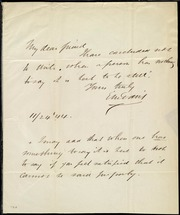 My dear friend
I have concluded not
to write, when a person has nothing
to say it is best to be still.
Yours truly
11/24/44.
I may add that when one has
something to say it is best not
to say if you feel satisfied that it
cannot be said properly.